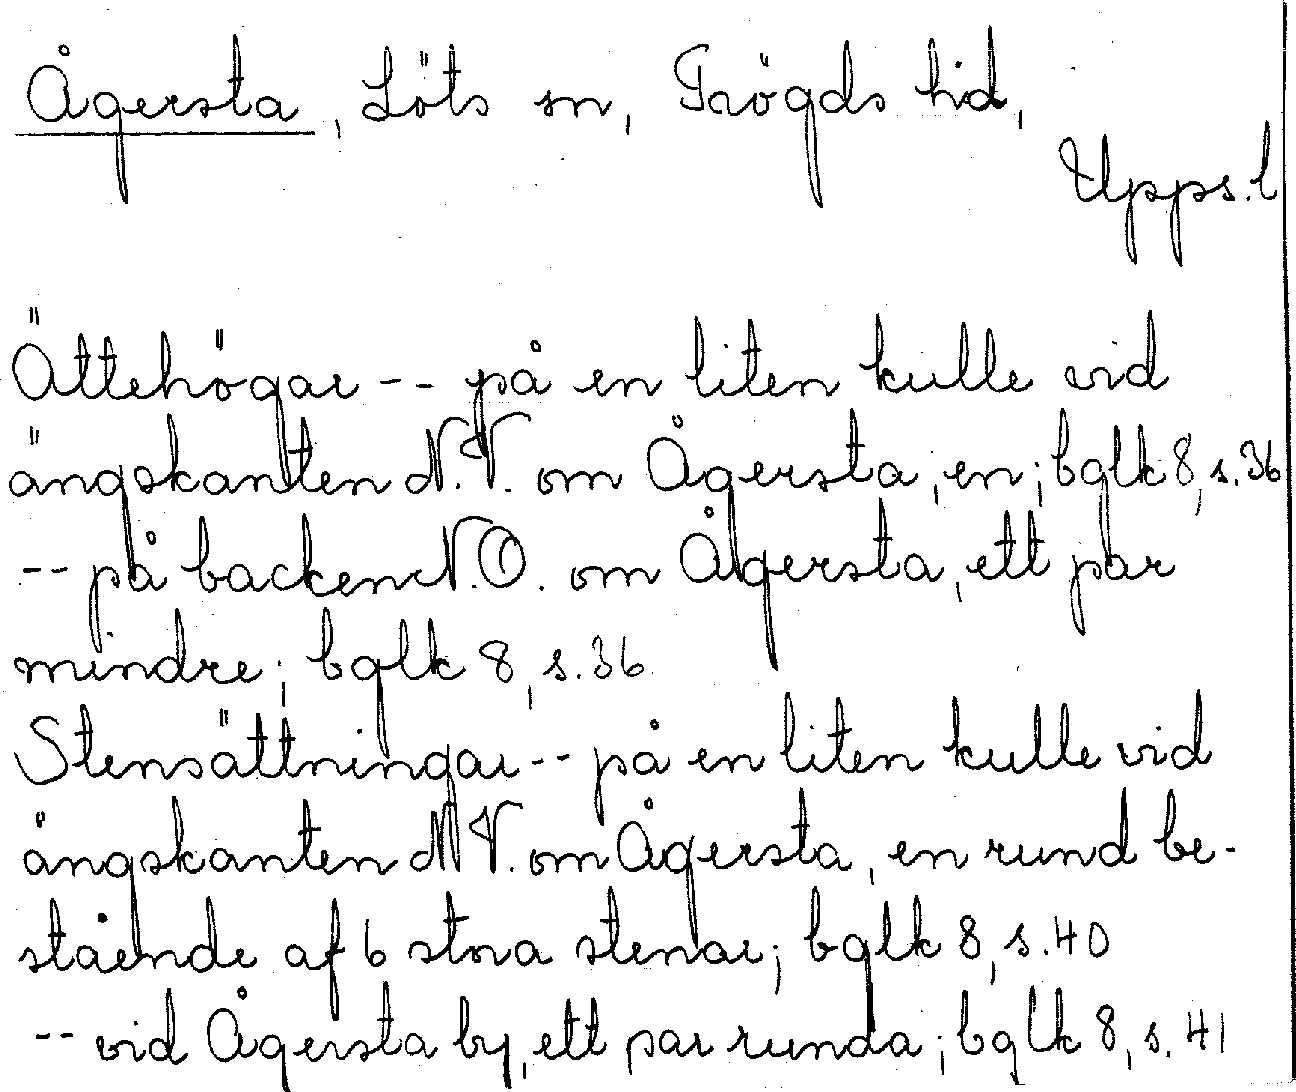 Ågersta, Löts sn, Trögds hd,
Upps.l
Ättehögar -- på en liten kulle vid
ängskanten N.V. om Ågersta, en; bglk 8, s.36
-- på backen N.O. om Ågersta, ett par
mindre; bglk 8, s.36
Stensättningar -- på en liten kulle vid
ängskanten N V. om Ågersta, en rund be-
stående af 6 stora stenar; bglk 8, s.40
-- vid Ågersta by, ett par runda; bglk 8, s. 41